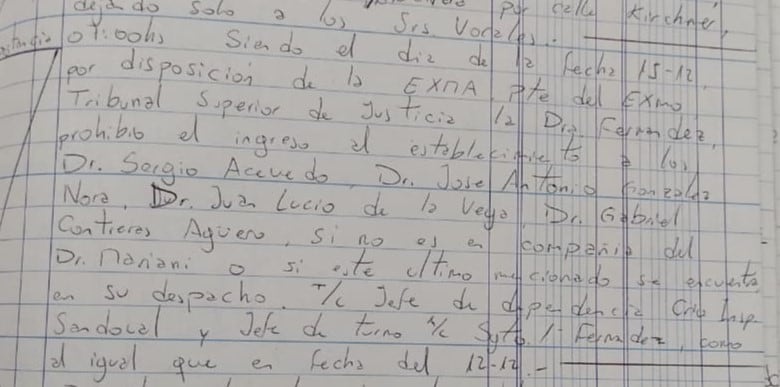 dejando solo a los Srs. Vocales. por calle Kirchner,
07:00hs Siendo el dia de la fecha 15-12,
por disposición de la EXNA Pte del EXmo
Tribunal Superior de Justicia la Dra. Fernandez,
prohibio el ingreso al establecimiento a los
Dr. Sergio Acevedo, Dr. Jose Antonio Gonzalez
Nora, Dr. Juan Lucio de la Vega, Dr. Gabriel
Contreras Agüero, si no es en compañia del
Dr. Mariani o si este ultimo mencionado se encuentra
en su despacho. T/c Jefe de dependencia Crio Insp.
Sandoval y Jefe de turno A/c Sgto 1° Fernandez, como
al igual que en fecha del 12-12.-